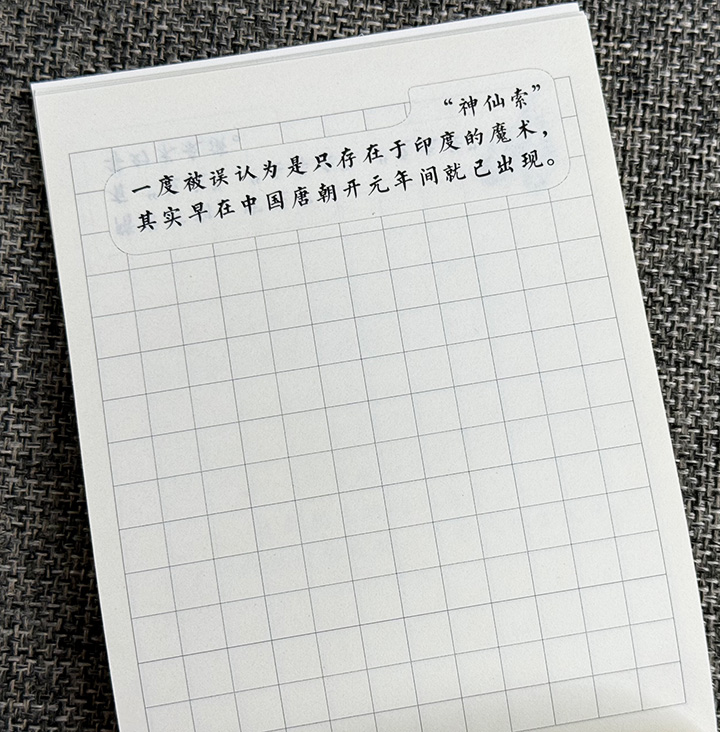 “神仙索”
一度被误认为是只存在于印度的魔术，
其实早在中国唐朝开元年间就已出现。